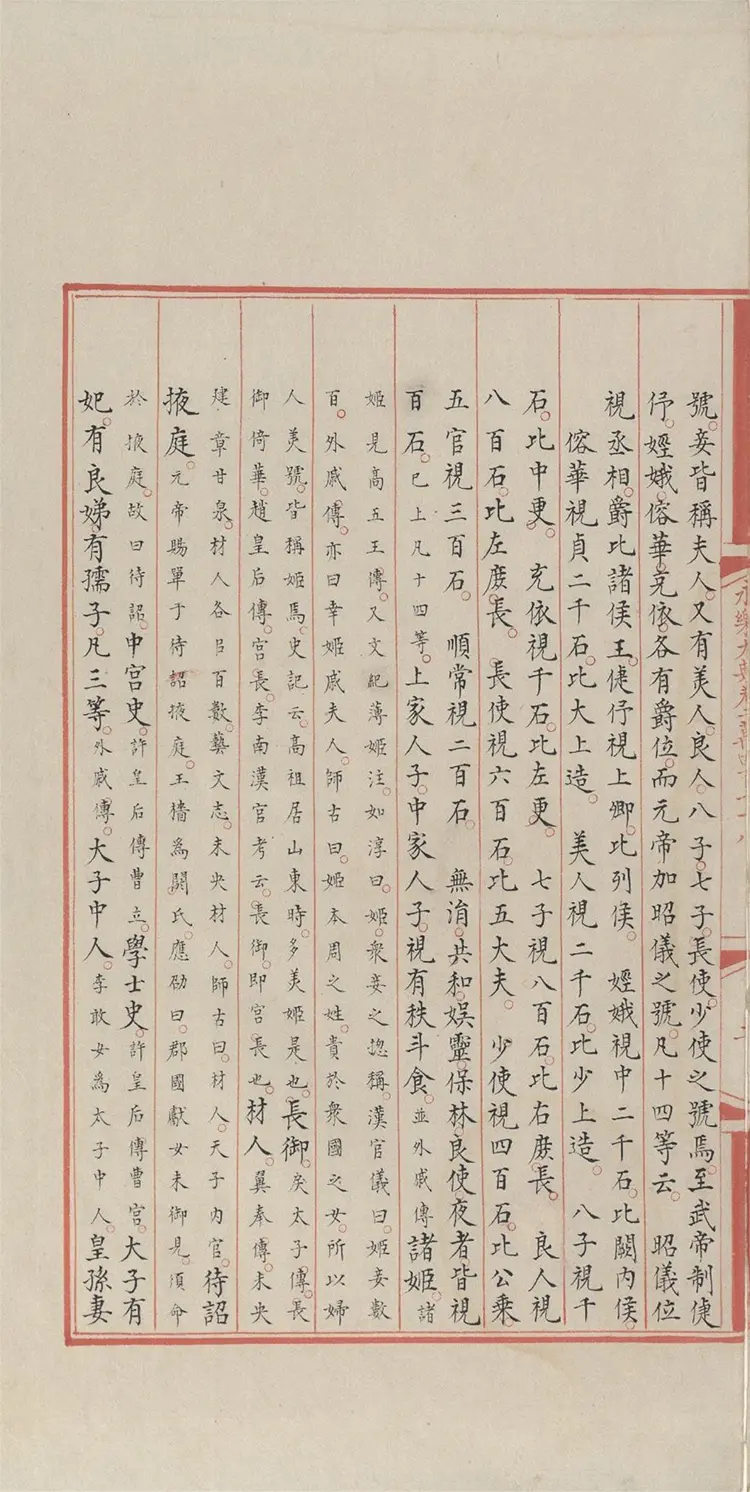 號。妾皆稱夫人。又有美人。良人。八子。七子。長使。少使之號焉。至武帝制倢
伃。娙娥。傛華。充依。各有爵位。而元帝加昭儀之號。凡十四等云。 昭儀位
視丞相。爵比諸侯王。倢伃視上卿。比列侯。 娙娥視中二千石。比關內侯。
傛華視貞二千石。比大上造。 美人視二千石。比少上造。 八子視千
石。比中更。 充依視千石。比左更。 七子視八百石。比右庶長。 良人視
八百石。比左庶長。 長使視六百石。比五大夫。 少使視四百石。比公乘。
五官視三百石。 順常視二百石。 無涓。共和。娛靈。保林。良使。夜者皆視
百石。已上凡十四等。上家人子。中家人子。視有秩斗食。並外戚傳諸姬。諸
姬見高五王傳。又文紀薄姬注。如淳曰。姬。衆妾之揔稱。漢官儀曰。姬妾數
百。外戚傳。亦曰幸姬戚夫人。師古曰。姬本周之姓。貴於衆國之女。所以婦
人美號。皆稱姬焉。史記云。高祖居山東時。多美姬是也。長御。戾太子傳。長
御倚華。趙皇后傳。宮長。李南漢官考云。長御。即宮長也。材人。翼奉傳。未央
建章甘泉。材人各㠯百數。藝文志。未央材人。師古曰。材人。天子內官。待詔
掖庭。元帝賜單于待詔掖庭。王檣為閼氏。應劭曰。郡國獻女未御見。須命
於掖庭。故曰待詔。中宮史。許皇后傳曹立。學士史。許皇后傳曹宮。大子有
妃。有良娣。有孺子。凡三等。外戚傳。大子中人。李敢女為太子中人。皇孫妻